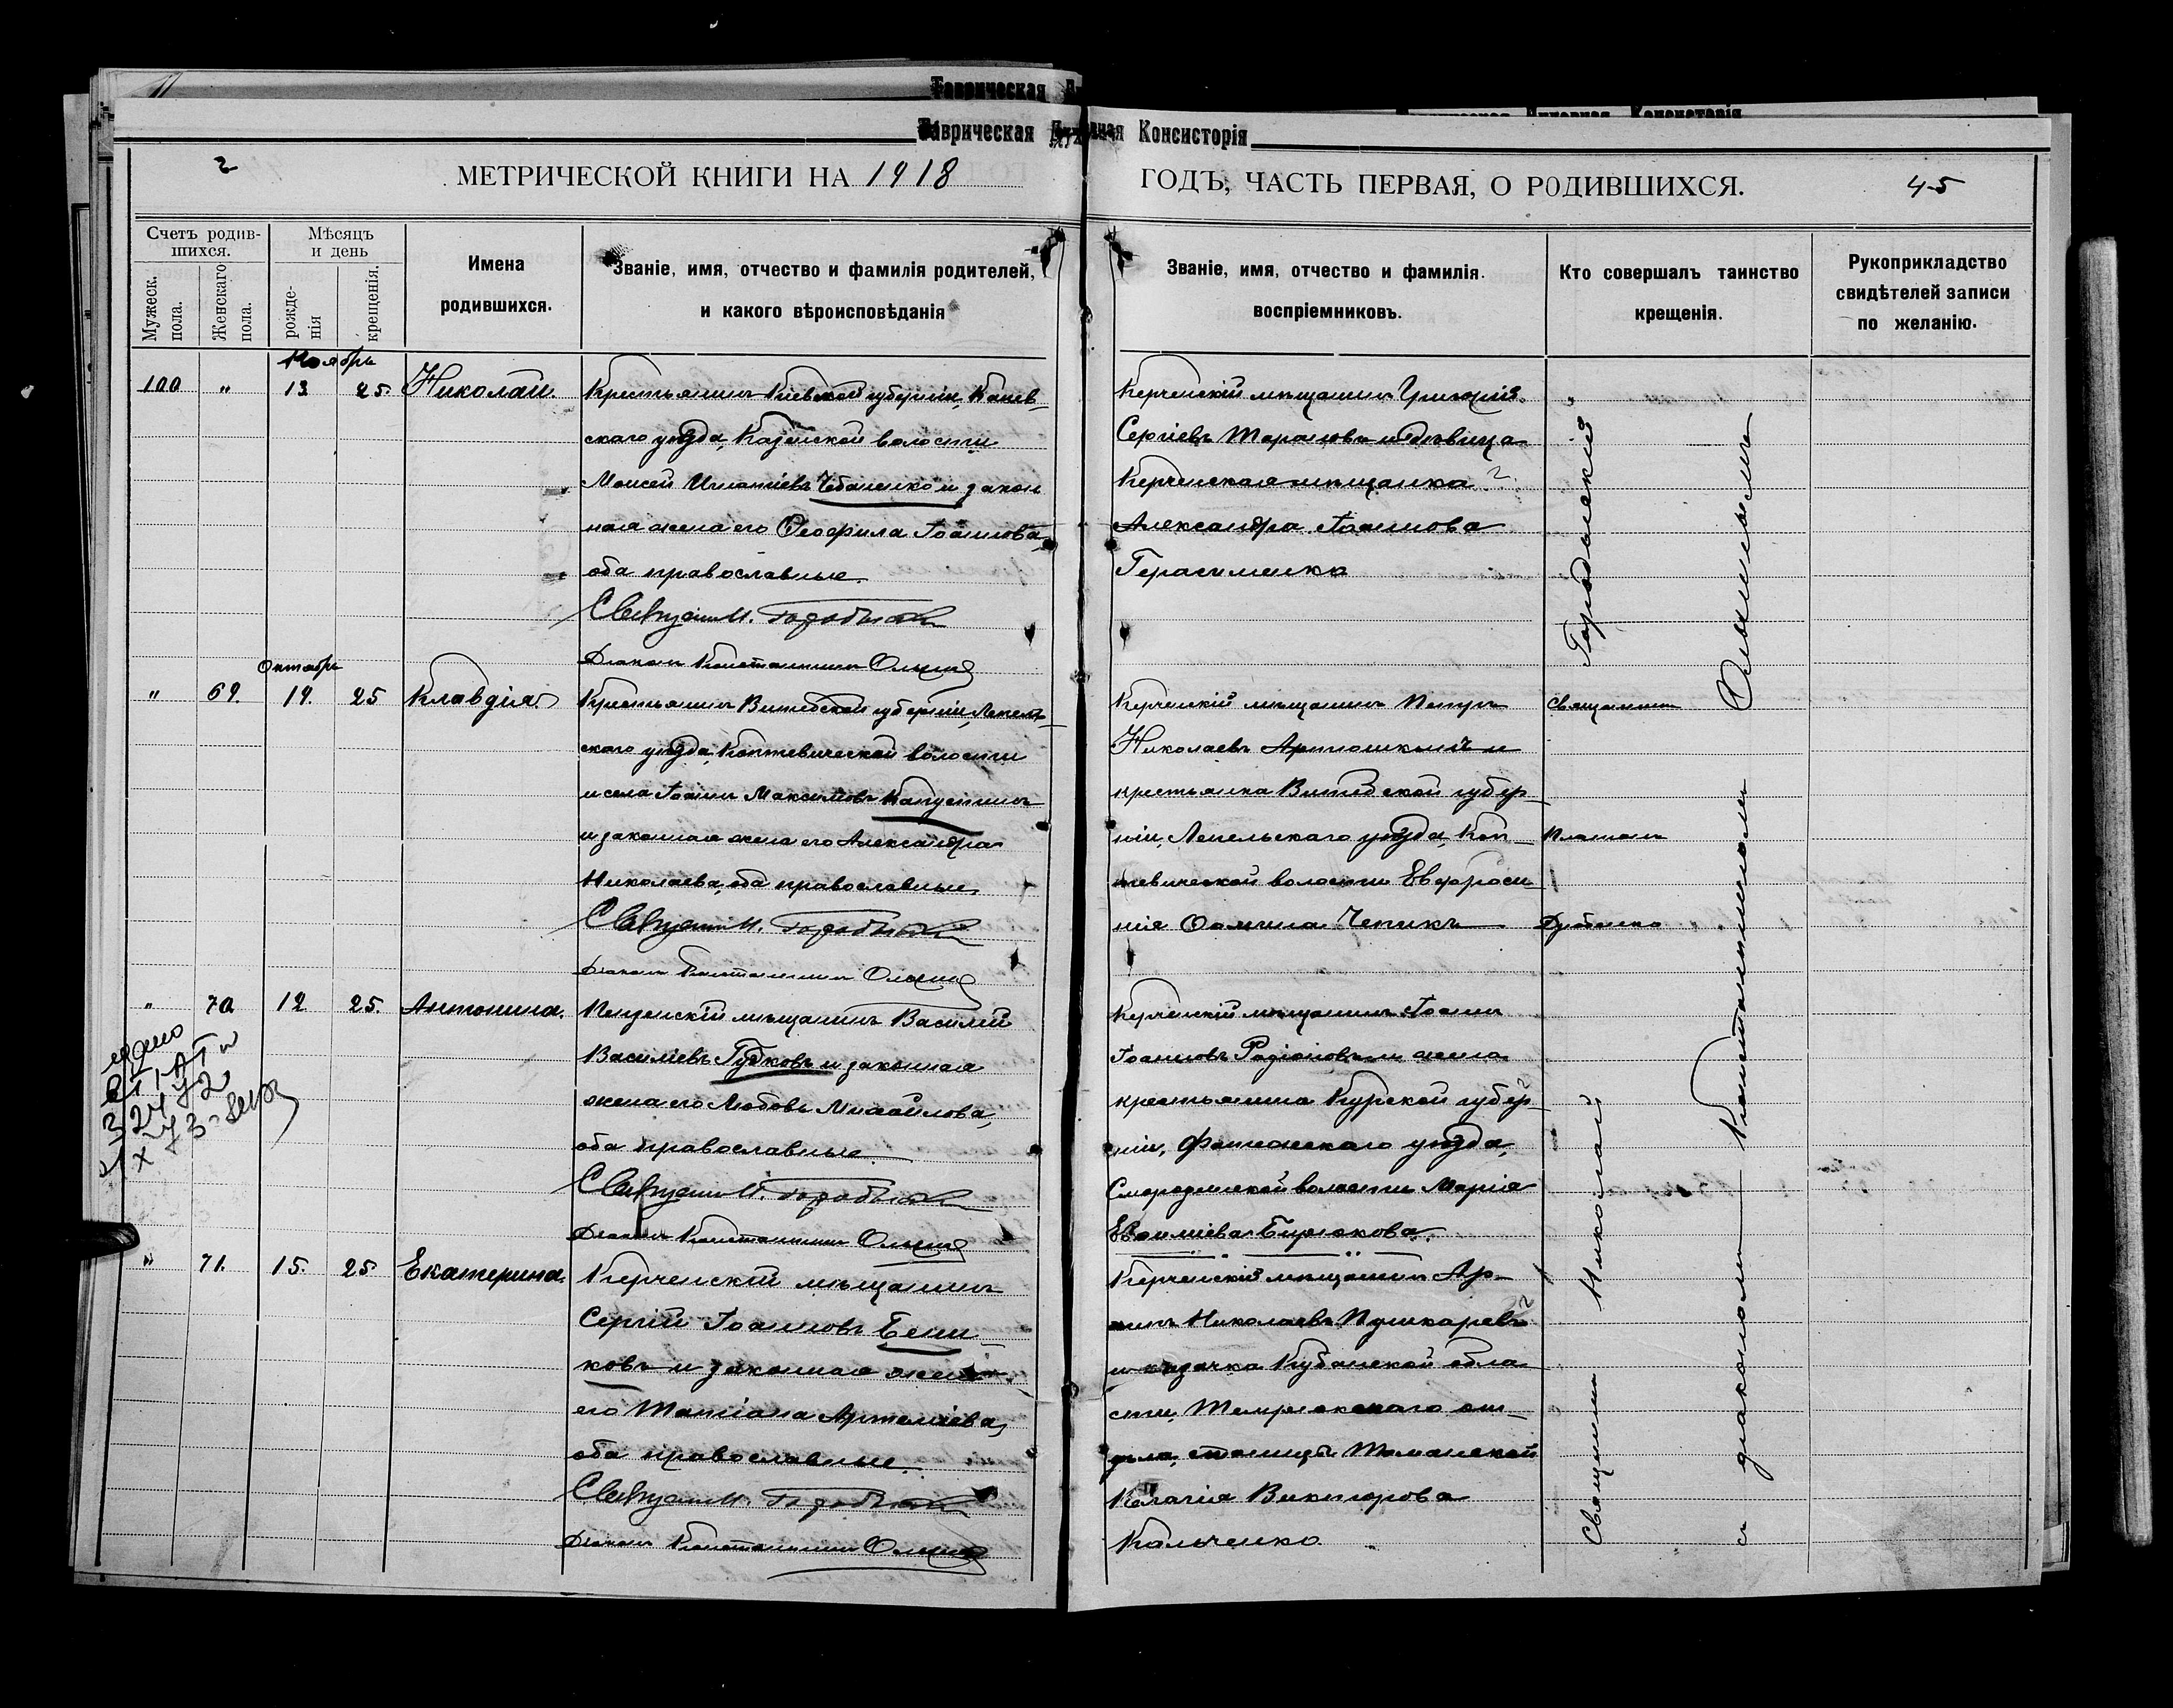 Таврическая
Таврическая Духовная Консисторія
2
МЕТРИЧЕСКОЙ КНИГИ НА 1918
ГОДЪ, ЧАСТЬ ПЕРВАЯ, О РОДИВШИХСЯ.
45
Счетъ родив-
шихся.
Мужеск. пола.
Женскаго пола.
Мѣсяцъ
и день
рожде-
нія
крещенія.
Имена
родившихся.
Званіе, имя, отчество и фамилія родителей,
и какого вѣроисповѣданія
Званіе, имя, отчество и фамилія.
воспріемниковъ.
Кто совершалъ таинство
крещенія.
Рукоприкладство
свидѣтелей записи
по желанію.
Ноябрь
100 " 13 25. Николай.
Крестьянинъ Кіевской губерніи, Канев-
скаго уѣзда, волости
Моисей Чебаненко и закон
ная жена его Ѳеофила Іоаннова,
оба православные.
Священ. Н. Городынскій
Діаконъ Константинъ
Керченскій мѣщанинъ Григорій
Сергіевъ Тарасовъ и дѣвица
Керченская мѣщанка
Александра Іоаннова
Герасименко
Октябрь
" 69. 19. 25 Клавдія.
Крестьянинъ Витебской губерніи, Лепель-
скаго уѣзда, Коптевической волости
и села Іоаннъ Максимовъ Капустинъ
и законная жена его Александра
Николаева, оба православные.
Священ. Н. Городынскій
Діаконъ Константинъ
Керченскій мѣщанинъ Петръ
Николаевъ и
крестьянка Витебской губер-
ніи, Лепельскаго уѣзда, Коп-
тевической волости Евфроси
нія Ѳомина Чепикъ
Священникъ
Платонъ
" 70 12 25. Антонина.
мѣщанинъ Василій
Василіевъ Губковъ и законная
жена его Любовь Михайлова,
оба православные.
Священ. Н. Городынскій
Діаконъ Константинъ
Керченскій мѣщанинъ Іоаннъ
Іоанновъ Родіоновъ и жена
крестьянина Курской губер-
ніи, уѣзда,
волости Марія
Евѳиміева Бирюкова.
" 71. 15. 25 Екатерина.
Керченскій мѣщанинъ
Сергій Іоанновъ Бени-
ковъ и законная жена
его Татіана Артеміева,
оба православные.
Священ. Н. Городынскій
Діаконъ Константинъ
Керченскій мѣщанинъ
Николаевъ Пушкаревъ
и казачка Кубанской обла
сти, Темрюкскаго от-
дѣла, станицы Таманской
Пелагія Викторова
Кальченко.
Священникъ Николай Городынскій
съ діакономъ Константиномъ